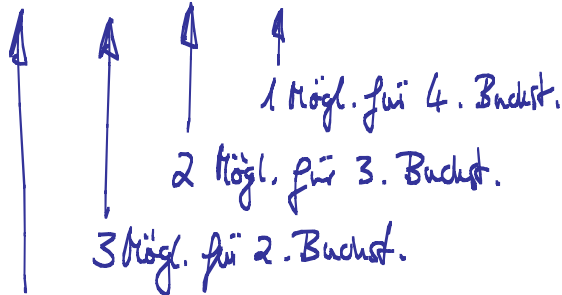 1 Mögl. für 4. Buchst.
2 Mögl. für 3. Buchst.
3 Mögl. für 2. Buchst.